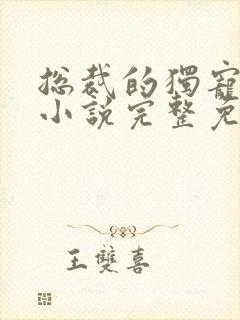 总裁的獨寵
小說完整免
王雙喜